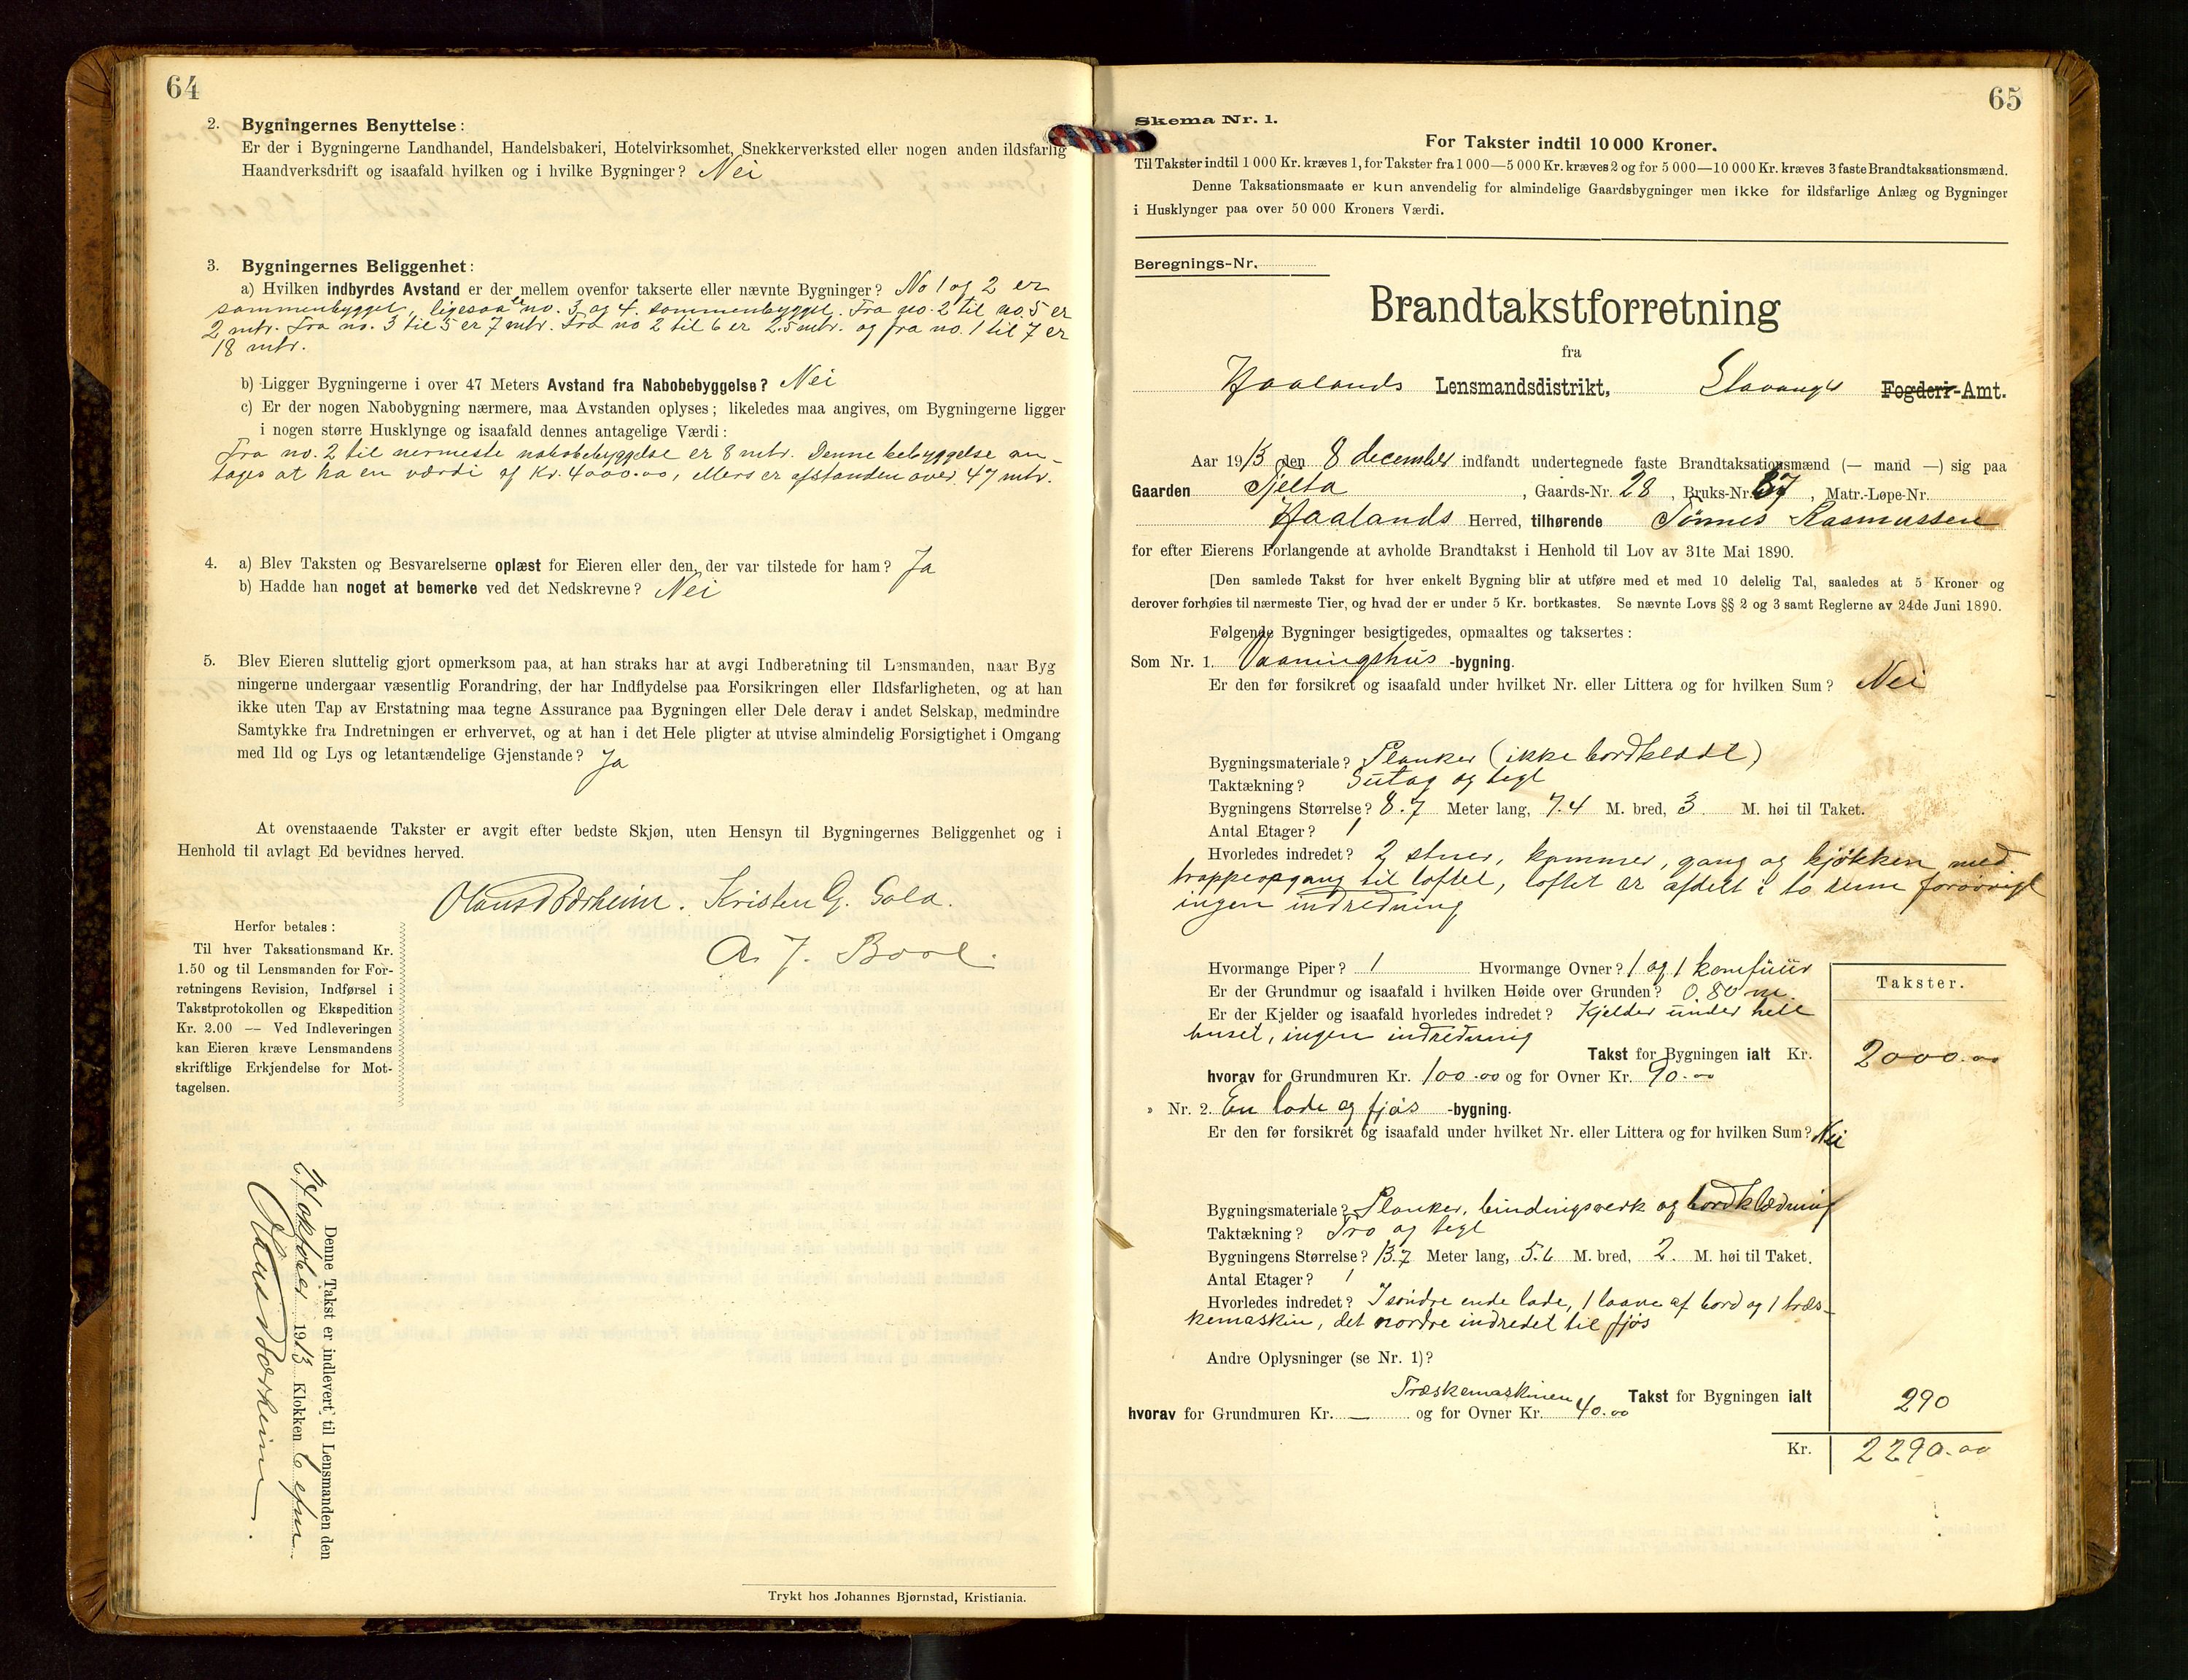 64
2. Bygningernes Benyttelse:
Er der i Bygningerne Landhandel, Handelsbakeri, Hotelvirksomhet, Snekkerverksted eller nogen anden ildsfarlig
Haandverksdrift og isaafald hvilken og i hvilke Bygninger? Nei
3. Bygningernes Beliggenhet:
a) Hvilken indbyrdes Avstand er der mellem ovenfor takserte eller nævnte Bygninger? No 1 og 2 er
sammenbygget, ligesaa no. 3 og 4. sammenbygget. Fra no. 2 til no. 5 er
2 mtr. Fra no. 3 til 5 er 7 mtr. Fra no 2 til 6 er 25 mtr. og fra no. 1 til 7 er
18 mtr.
b) Ligger Bygningerne i over 47 Meters Avstand fra Nabobebyggelse? Nei
c) Er der nogen Nabobygning nærmere, maa Avstanden oplyses; likeledes maa angives, om Bygningerne ligger
i nogen større Husklynge og isaafald dennes antagelige Værdi:
Fra no. 2 til nermeste nabobebyggelse er 8 mtr. Denne bebyggelse an-
tages at ha en værdi af Kr. 4000.00, ellers er afstanden over 47 mtr.
4. a) Blev Taksten og Besvarelserne oplæst for Eieren eller den, der var tilstede for ham? Ja
b) Hadde han noget at bemerke ved det Nedskrevne? Nei
5. Blev Eieren sluttelig gjort opmerksom paa, at han straks har at avgi Indberetning til Lensmanden, naar Byg
ningerne undergaar væsentlig Forandring, der har Indflydelse paa Forsikringen eller Ildsfarligheten, og at han
ikke uten Tap av Erstatning maa tegne Assurance paa Bygningen eller Dele derav i andet Selskap, medmindre
Samtykke fra Indretningen er erhvervet, og at han i det Hele pligter at utvise almindelig Forsigtighet i Omgang
med Ild og Lys og letantændelige Gjenstande? Ja
At ovenstaaende Takster er avgit efter bedste Skjøn, uten Hensyn til Bygningernes Beliggenhet og i
Henhold til avlagt Ed bevidnes herved.
Olaus Børheim. Kristen G. Sola.
A. J.
Herfor betales:
Til hver Taksationsmand Kr.
1.50 og til Lensmanden for For-
retningens Revision, Indførsel i
Takstprotokollen og Ekspedition
Kr. 2.00 — Ved Indleveringen
kan Eieren kræve Lensmandens
skriftlige Erkjendelse for Mot-
tagelsen.
Denne Takst er indlevert til Lensmanden den
oktober 1913 Klokken 6 efm.
Olaus Børheim.
Trykt hos Johannes Bjørnstad, Kristiania.
65
Skema Nr. 1.
For Takster indtil 10 000 Kroner.
Til Takster indtil 1 000 Kr. kræves 1, for Takster fra 1 000—5 000 Kr. kræves 2 og for 5 000—10 000 Kr. kræves 3 faste Brandtaksationsmænd.
Denne Taksationsmaate er kun anvendelig for almindelige Gaardsbygninger men ikke for ildsfarlige Anlæg og Bygninger
i Husklynger paa over 50 000 Kroners Værdi.
Beregnings-Nr.
Brandtakstforretning
fra
Haalands Lensmandsdistrikt, Stavanger Fogderi-Amt.
Aar 1913 den 8 december indfandt undertegnede faste Brandtaksationsmænd (— mand —) sig paa
Gaarden Tjelta, Gaards-Nr. 28, Bruks-Nr. 37, Matr.-Løpe-Nr.
Haalands Herred, tilhørende Tönnes Rasmussen
for efter Eierens Forlangende at avholde Brandtakst i Henhold til Lov av 31te Mai 1890.
[Den samlede Takst for hver enkelt Bygning blir at utføre med et med 10 delelig Tal, saaledes at 5 Kroner og
derover forhøies til nærmeste Tier, og hvad der er under 5 Kr. bortkastes. Se nævnte Lovs §§ 2 og 3 samt Reglerne av 24de Juni 1890.
Følgende Bygninger besigtigedes, opmaaltes og taksertes:
Som Nr. 1. Vaaningshus -bygning.
Er den før forsikret og isaafald under hvilket Nr. eller Littera og for hvilken Sum? Nei
Bygningsmateriale? Planker (ikke bordklædt)
Taktækning? Sutag og tegl
Bygningens Størrelse? 8.7 Meter lang, 7.4 M. bred, 3 M. høi til Taket.
Antal Etager? 1
Hvorledes indredet? 2 stuer, kammer, gang og kjøkken med
trappeopgang til loftet, loftet er afdelt i to rum forøvrigt
ingen indredning
Hvormange Piper? 1 Hvormange Ovner? 1 og 1 komfüür
Er der Grundmur og isaafald i hvilken Høide over Grunden? 0.80 m.
Er der Kjelder og isaafald hvorledes indredet? Kjelder under hele
huset, ingen indredning
Takster.
Takst for Bygningen ialt Kr. 2000.00
hvorav for Grundmuren Kr. 100.00 og for Ovner Kr. 90.00
» Nr. 2. En lade og fjøs -bygning.
Er den før forsikret og isaafald under hvilket Nr. eller Littera og for hvilken Sum? Nei
Bygningsmateriale? Planker, bindingsverk og bordklædning
Taktækning? Tro og tegl
Bygningens Størrelse? 13.7 Meter lang, 5.6 M. bred, 2. M. høi til Taket.
Antal Etager? 1
Hvorledes indredet? I søndre ende lade, 1 laave af bord og 1 træs-
kemaskin, det nordre indredet til fjøs
Andre Oplysninger (se Nr. 1)?
Træskemaskinen Takst for Bygningen ialt 290
hvorav for Grundmuren Kr. — og for Ovner Kr. 40.00
Kr. 2290.00